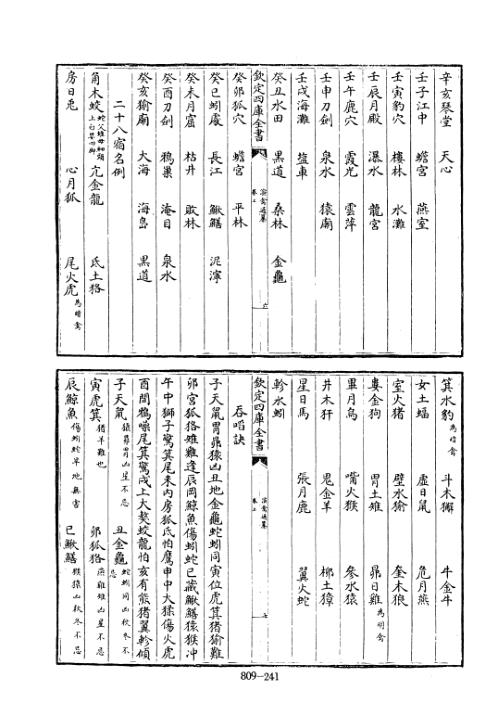 辛亥琴堂 天心
壬子江中 蟾宮 燕室
壬寅豹穴 樓林 水灘
壬辰月殿 瀑水 龍宮
壬午鹿穴 霞光 雲萍
壬申刀劍 泉水 猿廟
壬戌海灘 塩車
癸丑水田 黑道 桑林 金龜
欽定四庫全書 演禽通纂 卷上 六
癸卯狐穴 蟾宮 平林
癸巳蚓處 長江 鰍鱔 泥濘
癸未月窟 枯井 敗林
癸酉刀劍 鴉巢 淹目 泉水
癸亥㺄廟 大海 海島 黑道
二十八宿名例
角木蛟 亢金龍 氐土狢
房日兎 心月狐 尾火虎為暗禽
箕水豹為暗禽 斗木獬 牛金牛
女土蝠 虛日鼠 危月燕
室火猪 壁水㺄 奎木狼
婁金狗 胃土雉 昴日雞為明禽
畢月烏 嘴火猴 參水猿
井木犴 鬼金羊 柳土獐
星日馬 張月鹿 翼火蛇
軫水蚓
欽定四庫全書 演禽通纂 卷上 七
吞啗訣
子天鼠胃昴猿凶丑地金龜蛇蚓同寅位虎箕猪㺄難
卯宮狐狢雉雞逢辰岡鯨魚傷蚓蛇巳藏鰍鱔猿猴冲
午中獅子驚箕尾未內房狐氐怕鷹申中大猱傷火虎
酉間鴉喙尾箕驚戌上大獒蛟龍怕亥有熊猪翼軫傾
子天鼠猿昴胃凶星不忌 丑金龜蛇蚓同凶秋冬不忌
寅虎箕猪羊難也 卯狐狢燕雞雉凶星不忌
辰鯨魚傷蚓蛇旱地無害 巳鰍鱔猴猿凶秋冬不忌
809-241